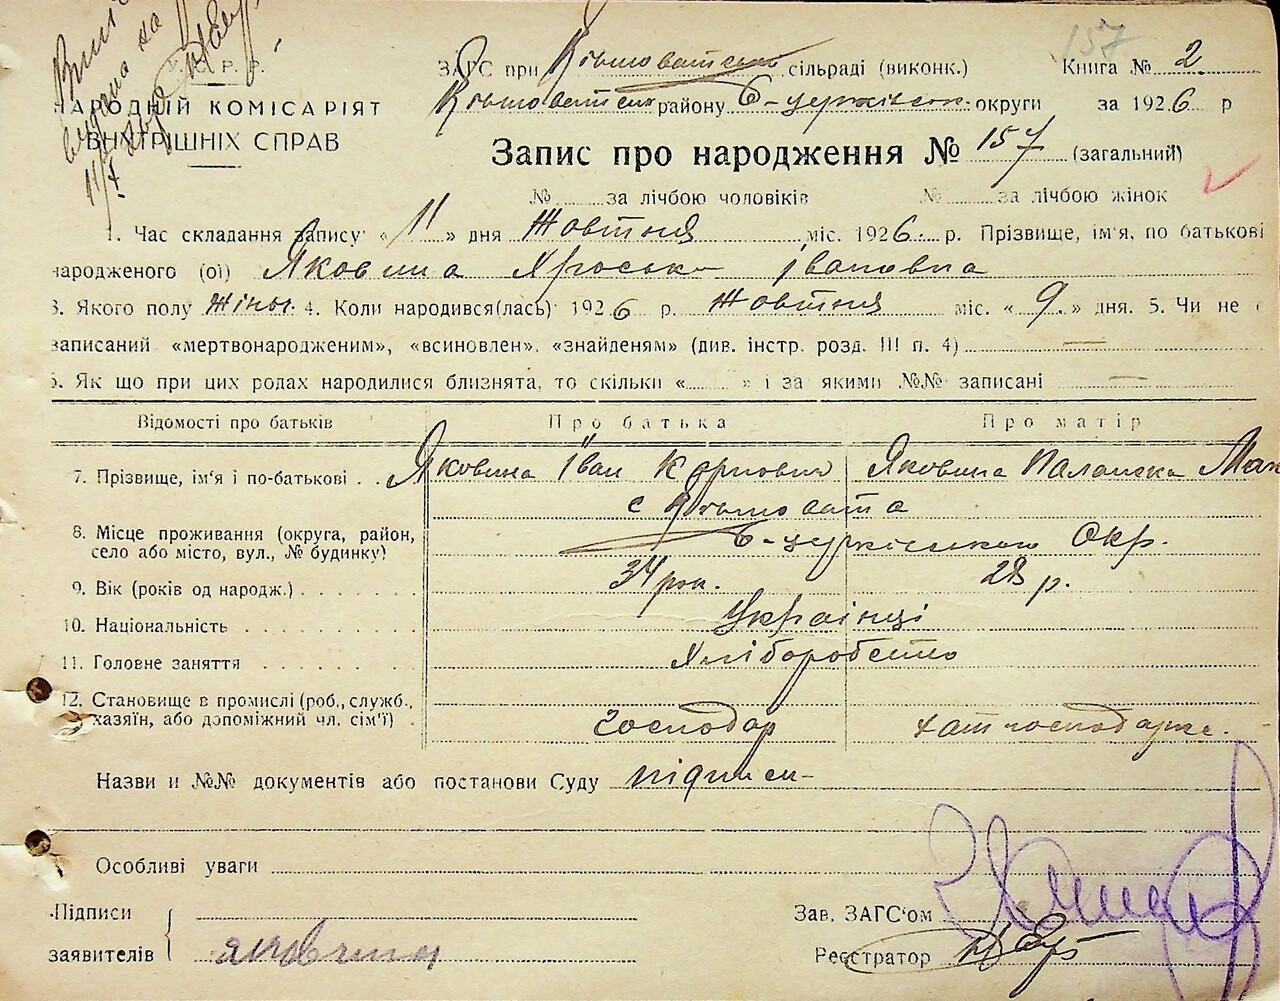 У. С. Р. Р.
НАРОДНІЙ КОМІСАРІЯТ
ВНУТРІШНІХ СПРАВ
157
ЗАГС при сільраді (виконк.) Книга № 2
району Б-церківськ. округи за 1926 р
Запис про народження № 157 (загальний)
№ за лічбою чоловіків № за лічбою жінок
1. Час складання запису: « 11 » дня Жовтня міс. 1926 р. Прізвище, ім'я, по батькові
народженого (ої) Яковина Хроська Івановна
3. Якого полу жіноч. 4. Коли народився(лась) 1926 р. Жовтня міс. « 9 » дня. 5. Чи не є
записаний «мертвонародженим», «всиновлен», «знайденям» (див. інстр. розд. III п. 4) —
6. Як що при цих родах народилися близнята, то скільки « » і за якими №№ записані —
Відомості про батьків Про батька Про матір
7. Прізвище, ім'я і по-батькові Яковина Іван Карпович Яковина Палажка Мак
8. Місце проживання (округа, район, село або місто, вул., № будинку)
Б-церківської Окр.
9. Вік (років од народж.) 34 рок. 28 р.
10. Національність Українці
11. Головне заняття Хліборобство
12. Становище в промислі (роб., служб., хазяїн, або допоміжний чл. сім'ї) Господар хатгосподарка.
Назви и №№ документів або постанови Суду підписи
Особливі уваги
Підписи
заявителів яковина
Зав. ЗАГС'ом
Реєстратор